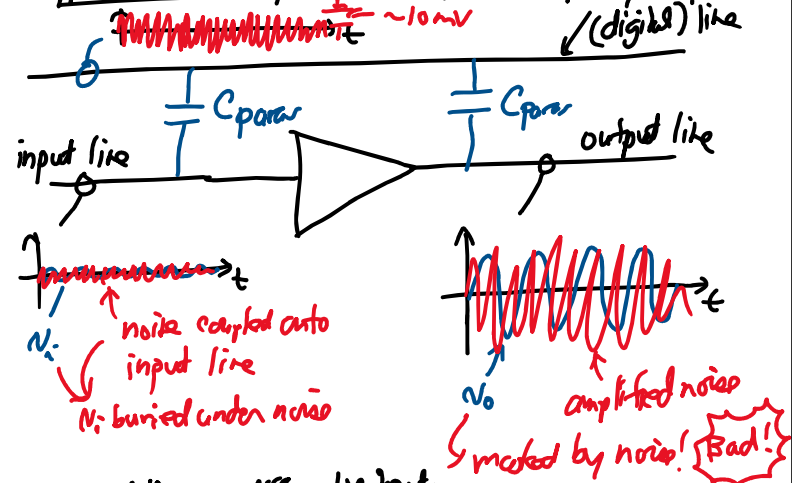 ~10mV
t
(digital) line
Cparas
Cparas
input line
output line
t
t
Ni
noise coupled onto
input line
Ni buried under noise
No
amplified noise
masked by noise! Bad!